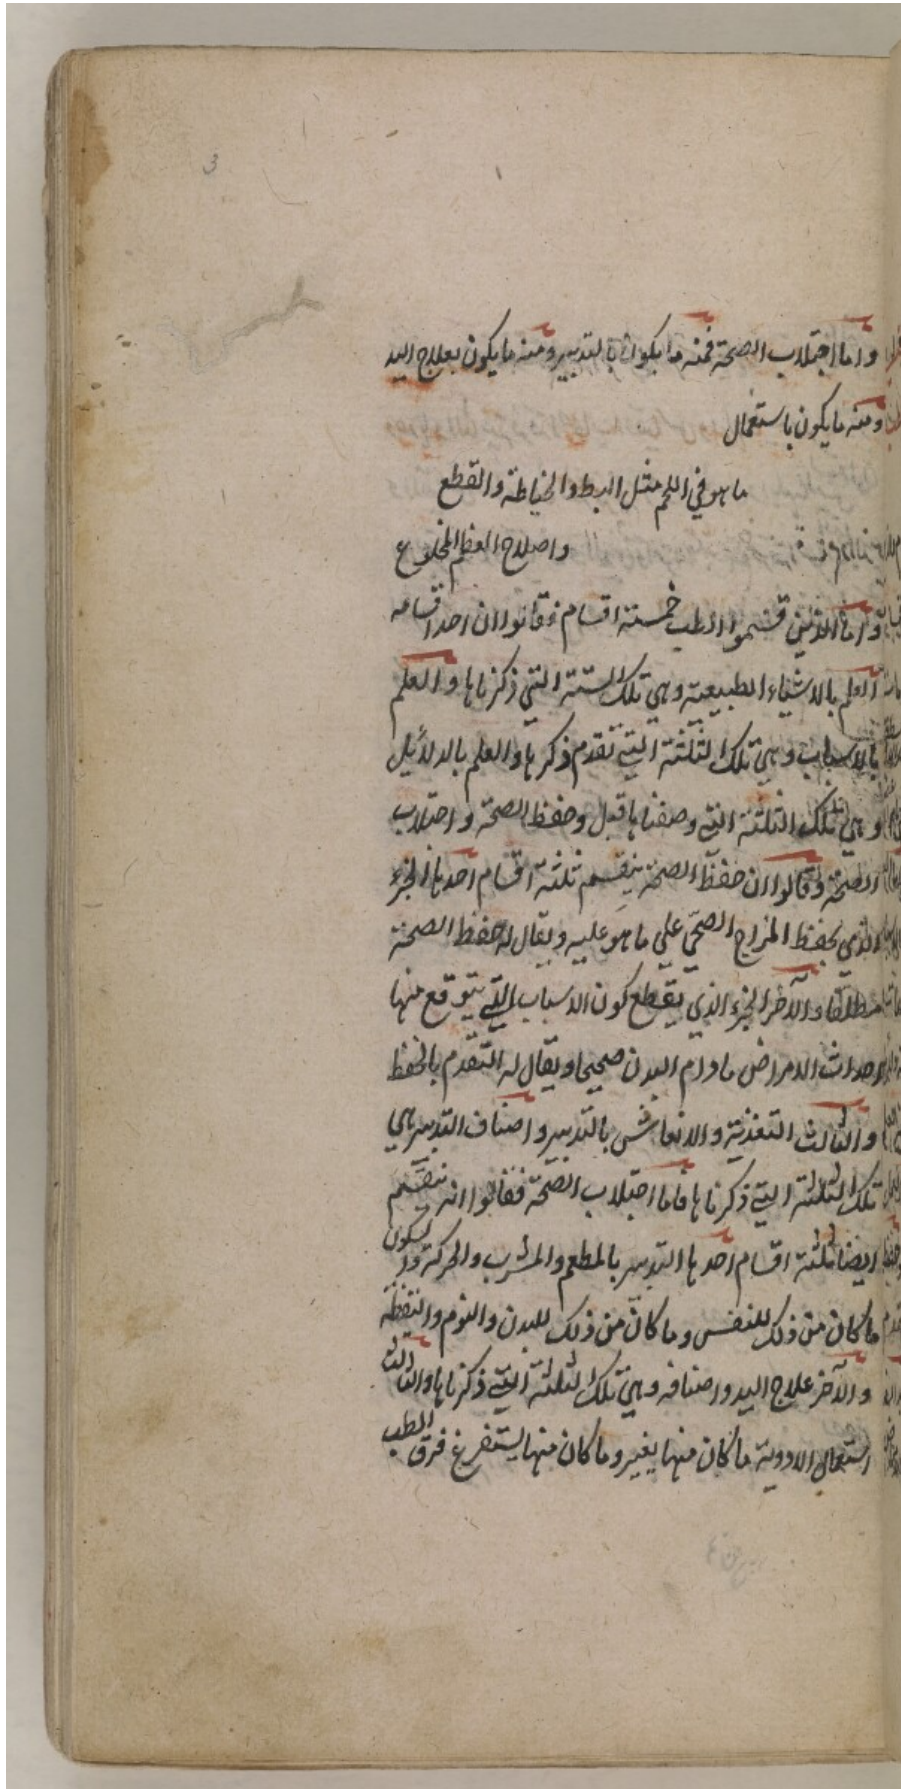 3
واما اجتلاب الصحة فمنه ما يكون بالتدبير ومنه ما يكون بعلاج اليد
ومنه ما يكون باستعمال
ما هو في اللحم مثل البط والخياطة والقطع
واصلاح العظم المخلوع
واما الذين قسموا الطب خمسة اقسام فقالوا ان احد اقسامه
العلم بالاشياء الطبيعية وهي تلك الستة التي ذكرناها والعلم
بالاسباب وهي تلك الثلثة التي تقدم ذكرها والعلم بالدلائل
وهي تلك الثلثة التي وصفناها قبل وحفظ الصحة واجتلاب
الصحة وقالوا ان حفظ الصحة ينقسم ثلثة اقسام احدها الجزء
الذي يحفظ المزاج الصحي على ما هو عليه ويقال له حفظ الصحة
مطلقا والآخر الجزء الذي يقطع كون الاسباب التي يتوقع منها
احداث الامراض ما دام البدن صحيحا ويقال له التقدم بالحفظ
والثالث التغذية والانعاش بالتدبير واصناف التدبير هي
تلك الثلثة التي ذكرناها فاما اجتلاب الصحة فقالوا انه ينقسم
ايضا ثلثة اقسام احدها التدبير بالمطعم والمشرب والحركة والسكون
ما كان من ذلك للنفس وما كان من ذلك للبدن والنوم واليقظة
والآخر علاج اليد واصنافه وهي تلك الثلثة التي ذكرناها والثالث
استعمال الادوية ما كان منها يغير وما كان منها يستفرغ فرق الطب